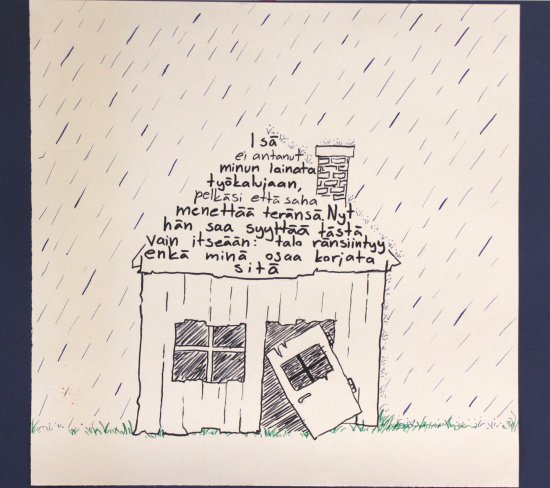 Isä
ei antanut
minun lainata
työkalujaan,
pelkäsi että saha
menettää teränsä. Nyt
hän saa syyttää tästä
vain itseään: talo ränsiintyy
enkä minä osaa korjata
sitä